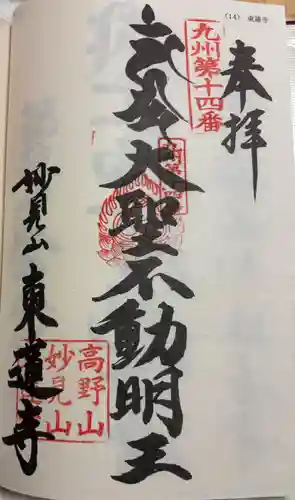 （14） 東蓮寺
奉拝
九州第十四番
大聖不動明王
高野山
妙見山
妙見山 東蓮寺